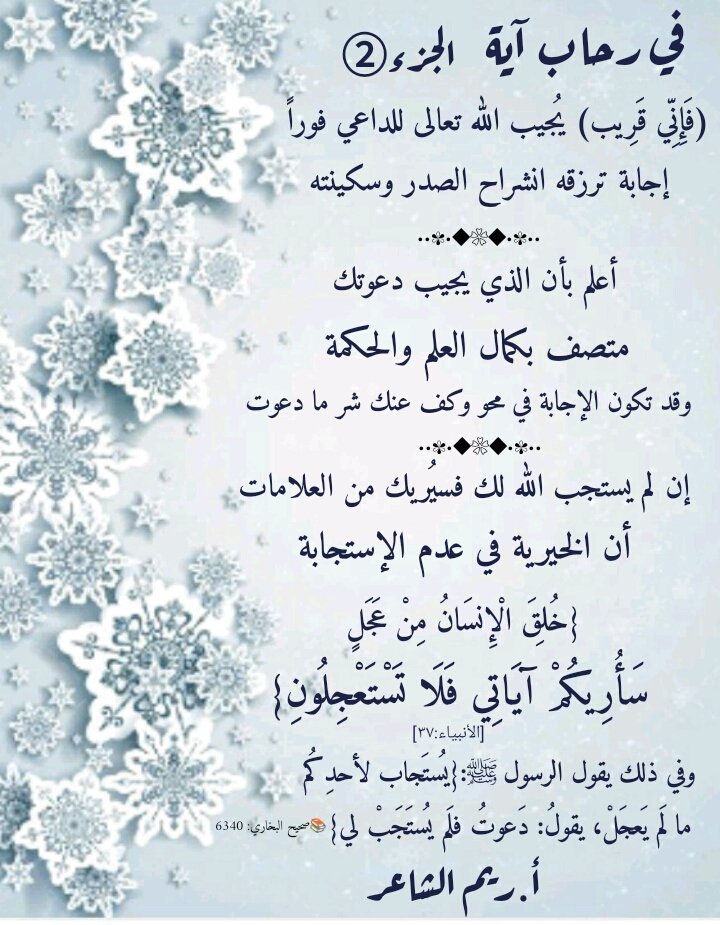 في رحاب آية الجزء②
(فَإِنِّي قَرِيب) يُجيب الله تعالى للداعي فوراً
إجابة ترزقه انشراح الصدر وسكينته
أعلم بأن الذي يجيب دعوتك
متصف بكمال العلم والحكمة
وقد تكون الإجابة في محو وكف عنك شر ما دعوت
إن لم يستجب الله لك فسيُريك من العلامات
أن الخيرية في عدم الإستجابة
{خُلِقَ الْإِنسَانُ مِنْ عَجَلٍ
سَأُرِيكُمْ آيَاتِي فَلَا تَسْتَعْجِلُونِ}
[الأنبياء:٣٧]
وفي ذلك يقول الرسول ﷺ:{يُستَجاب لأحدِكُم
ما لَم يَعجَلْ، يقولُ: دَعوتُ فلَم يُستَجَبْ لي} 📚صحيح البخاري: 6340
أ.ريم الشاعر